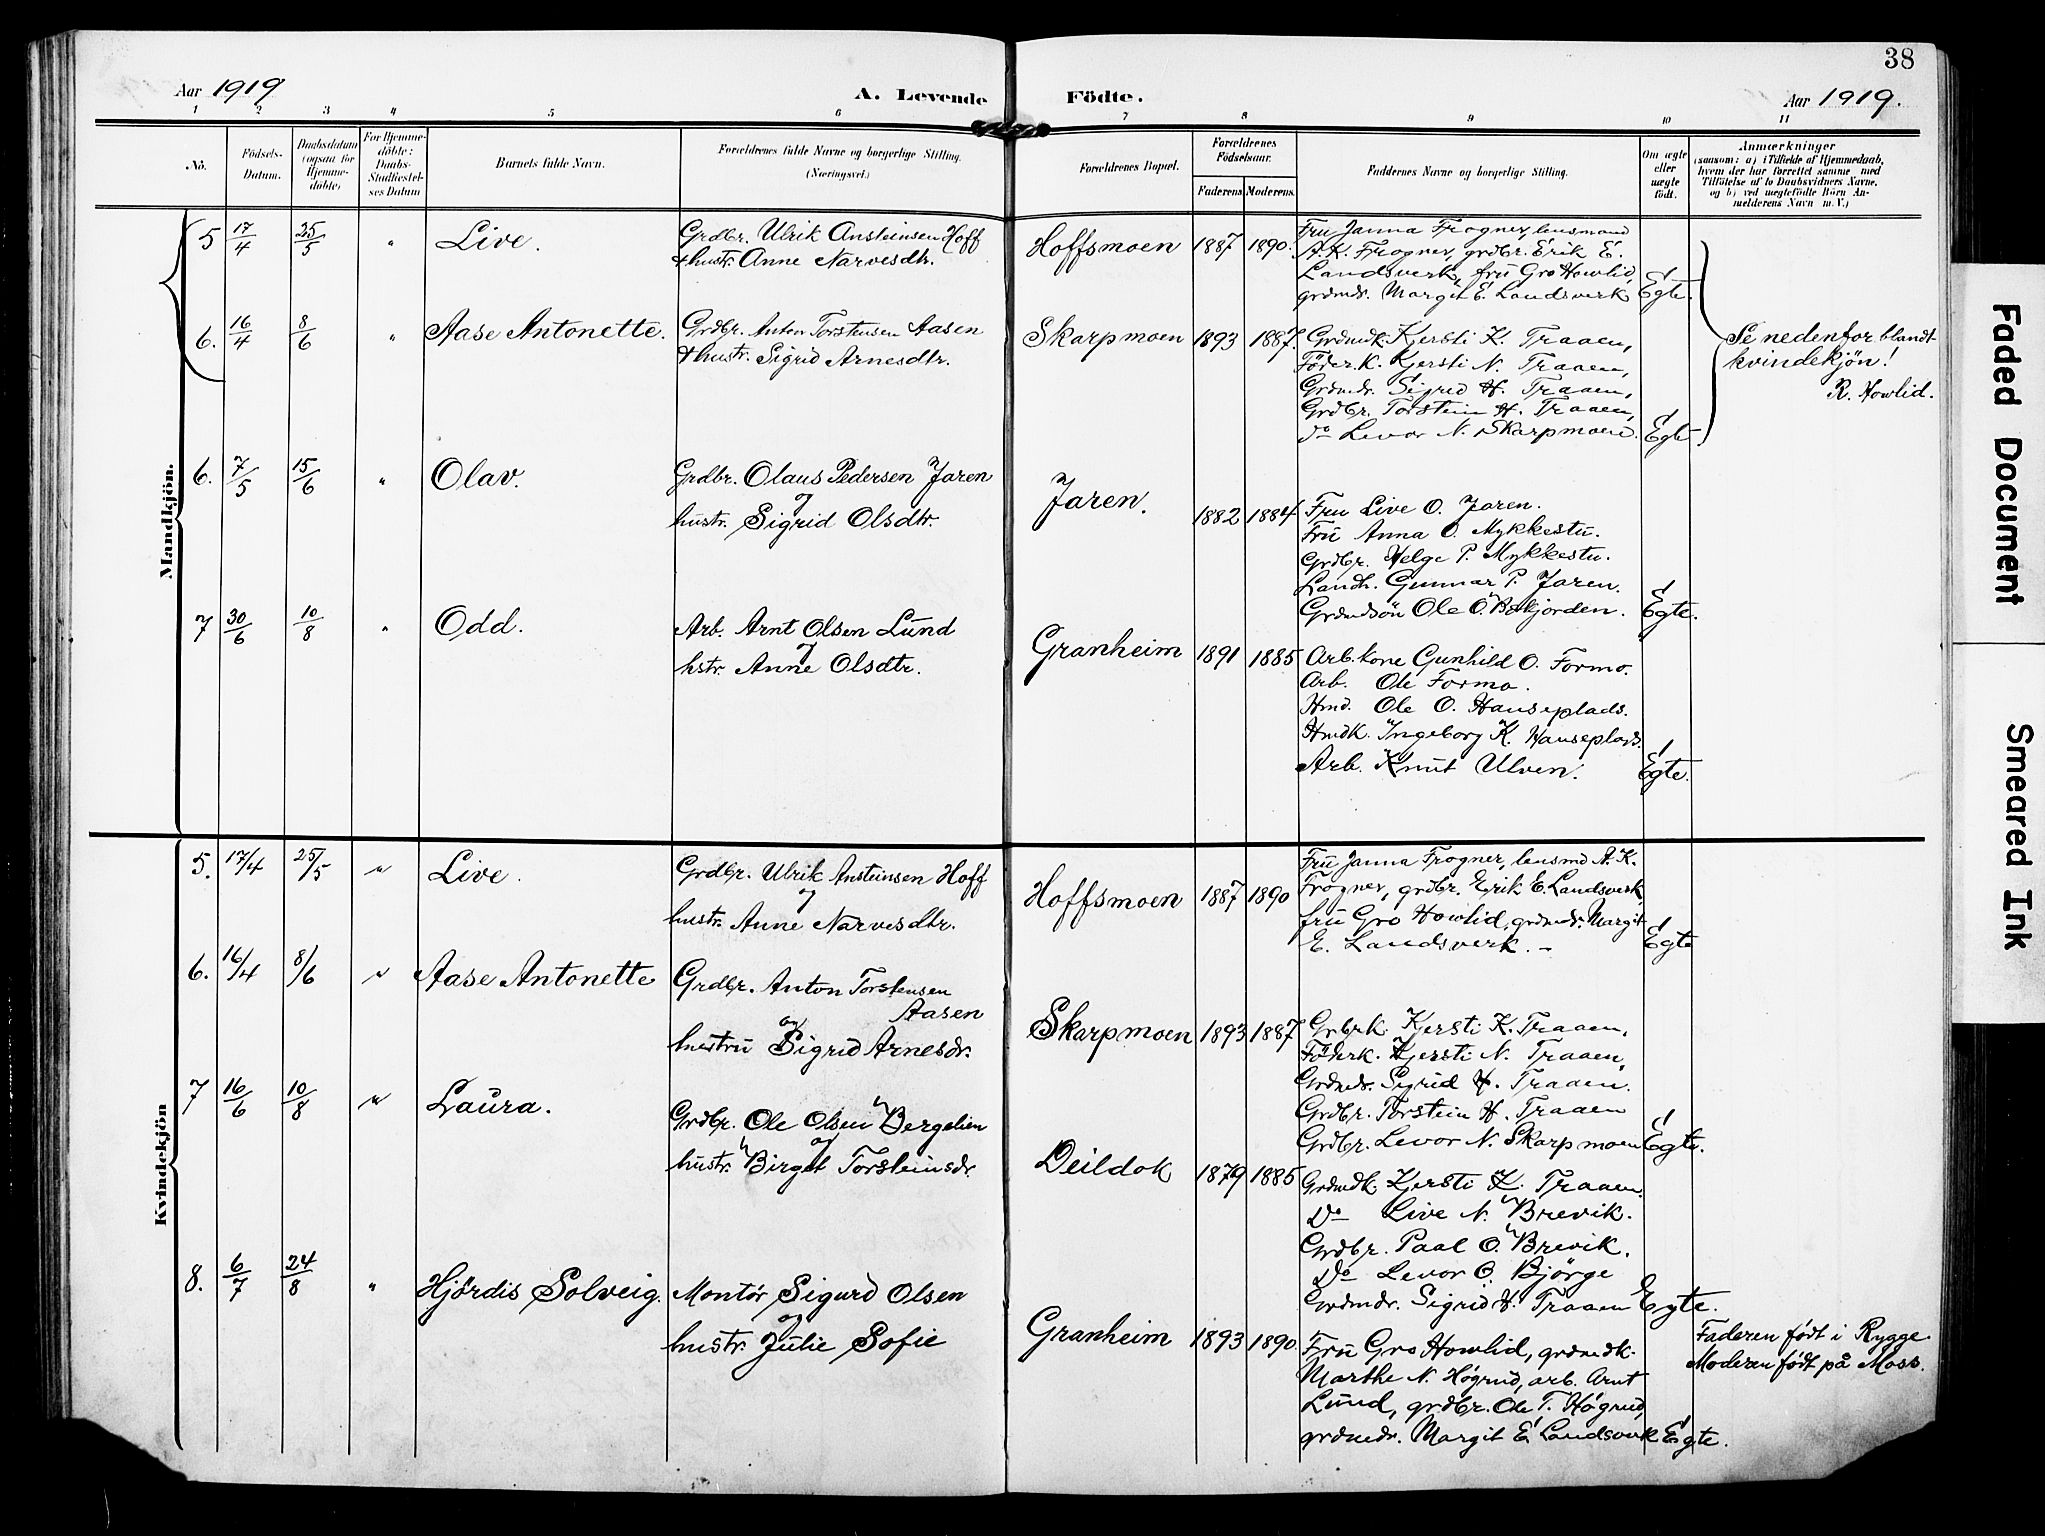 38
Aar 1919
A. Levende Födte.
Aar 1919.
1 2 3 4 5 6 7 8 9 10 11
No.
Födsels-
Datum.
Daabsdatum
(ogsaa for
Hjemme-
döbte)
For Hjemme-
döbte:
Daabs-
Stadfæstel-
ses Datum
Barnets fulde Navn.
Forældrenes fulde Navne og borgerlige Stilling.
(Næringsvei.)
Forældrenes Bopæl.
Forældrenes
Födselsaar.
Faderens Moderens.
Faddernes Navne og borgerlige Stilling.
Om ægte
eller
uægte
födt.
Anmærkninger
(saasom: a) i Tilfælde af Hjemmedaab,
hvem der har forrettet samme med
Tilföielse af to Daabsvidners Navne,
og b) ved uægtefödte Börn An-
melderens Navn m. V.)
Mandkjön.
5 17/4 25/5 " Live.
Grdbr. Ulrik Ansteinsen Hoff
& hustr. Anne Narvesdtr.
Hoffsmoen 1887 1890.
Fru Janna Frogner, lensmand
A. K. Frogner, grdbr. Erik E.
Landsverk, fru Gro Howlid,
grdmdr. Margit E. Landsverk Egte.
6. 16/4 8/6 " Aase Antonette.
Grdbr. Anton Torstensen Aasen
& hustr. Sigrid Arnesdtr.
Skarpmoen 1893 1887.
Grdmdk. Kjersti K. Traaen,
Föder.k. Kjersti N. Traaen,
Grdmdr. Sigrid H. Traaen,
Grdbr. Torstein H. Traaen,
do Levor N. Skarpmoen. Egte.
Se nedenfor blandt
kvindekjön!
R. Howlid.
6. 7/5 15/6 " Olav.
Grdbr. Olaus Pedersen Jaren
og
hustr. Sigrid Olsdtr.
Jaren. 1882 1884
Fru Live O. Jaren.
Fru Anna O. Mykkestu.
Grdbr. Helge P. Mykkestu.
Landh. Gunnar P. Jaren.
Grdmdsön Ole O. Bakjorden. Egte.
7 30/6 10/8 " Odd.
Arb. Arnt Olsen Lund
og
hstr. Anne Olsdtr.
Granheim 1891 1885
Arb.kone Gunhild O. Formo.
Arb. Ole Formo.
Hmd. Ole O. Hauseplads.
Hmdk. Ingeborg K. Hauseplads.
Arb. Knut Ulven. Egte.
Kvindekjön
5. 17/4 25/5 " Live.
Grdbr. Ulrik Ansteinsen Hoff
og
hustr. Anne Narvesdtr.
Hoffsmoen 1887 1890
Fru Janna Frogner, lensmd A. K.
Frogner, grdbr. Erik E. Landsverk,
fru Gro Howlid, grdmdr. Margit
E. Landsverk. - Egte
6. 16/4 8/6 " Aase Antonette
Grdbr. Anton Torstensen
Aasen
og
hustru Sigrid Arnesdr.
Skarpmoen 1893 1887
Grbrk. Kjersti K. Traaen,
Föderk. Kjersti N. Traaen,
Grdmdr. Sigrid H. Traaen.
Grdbr. Torstein H. Traaen
Grdbr. Levor N. Skarpmoen Egte.
7 16/6 10/8 " Laura.
Grdbr. Ole Olsen Bergelien
og
hustr. Birgit Torsteinsdr.
Deildok 1879 1885
Grdmdk. Kjersti K. Traaen.
Do Live N. Brevik.
Grdbr. Paal O. Brevik.
Do Levor O. Björge
Grdmdr. Sigrid H. Traaen Egte.
8. 6/7 24/8 " Hjördis Solveig.
Montör Sigurd Olsen
og
hustr. Julie Sofie
Granheim 1893 1890.
Fru Gro Howlid, grdmdk.
Marthe N. Högrud, arb. Arnt
Lund, grdbr. Ole T. Högrud,
grdmdr. Margit E. Landsverk Egte.
Faderen født i Rygge.
Moderen født på Moss.
Faded Document
Smeared Ink